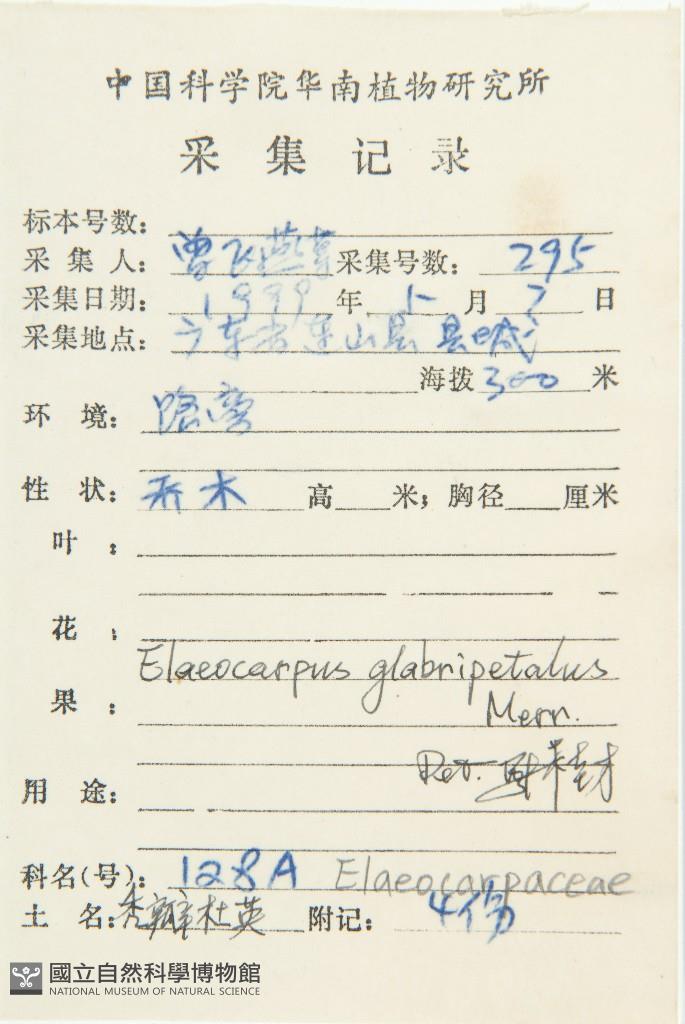 中国科学院华南植物研究所
采集记录
标本号数:
采集人: 曾飞燕等 采集号数: 295
采集日期: 1999 年 5 月 7 日
采集地点: 广东省连山县县城
海拨 300 米
环境: 路旁
性状: 乔木 高 米; 胸径 厘米
叶:
花:
Elaeocarpus glabripetalus
果: Merr.
Det.
用途:
科名(号): 128A Elaeocarpaceae
土名: 秃瓣杜英 附记: 4份
國立自然科學博物館
NATIONAL MUSEUM OF NATURAL SCIENCE